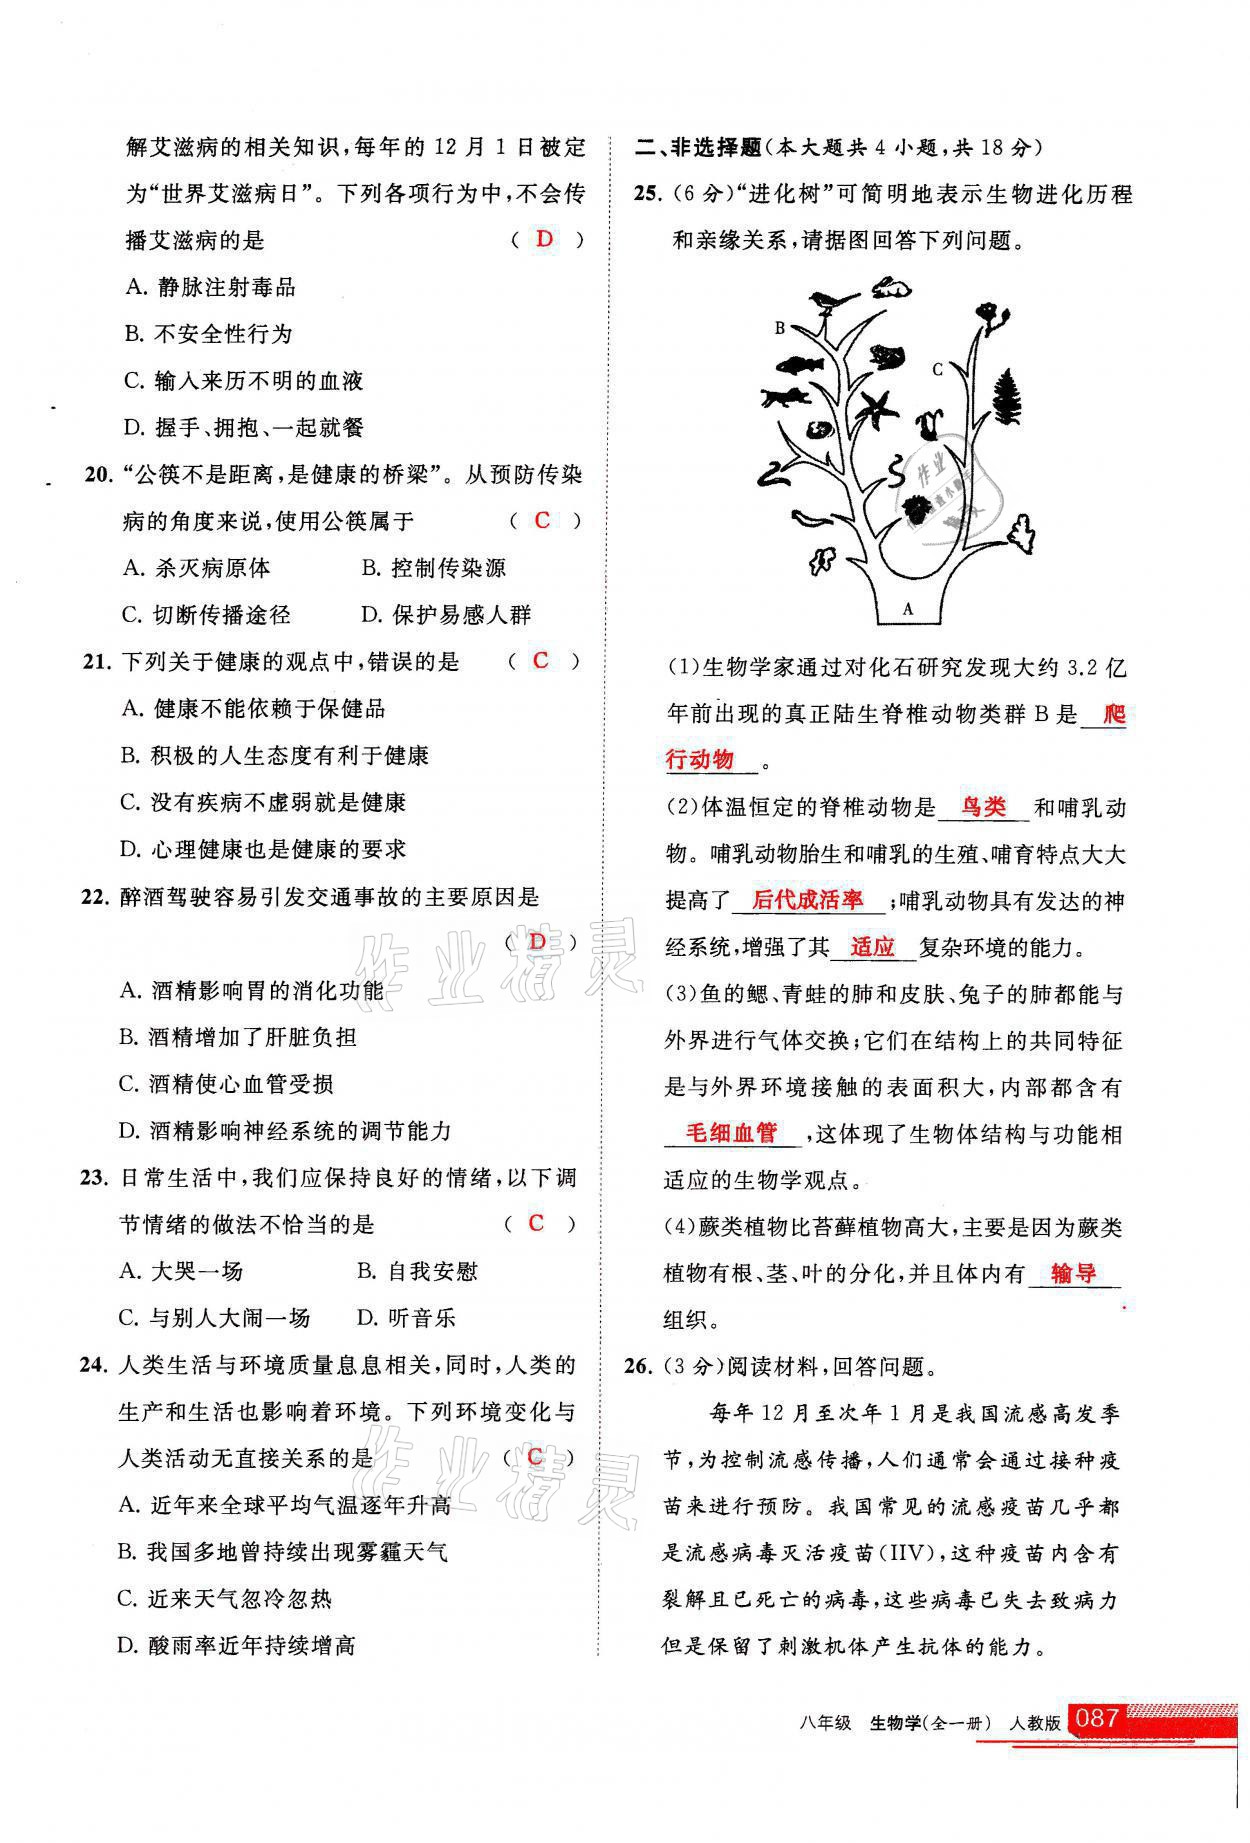 解艾滋病的相关知识,每年的 12 月 1 日被定
为“世界艾滋病日”。下列各项行为中,不会传
播艾滋病的是 ( D )
A. 静脉注射毒品
B. 不安全性行为
C. 输入来历不明的血液
D. 握手、拥抱、一起就餐
20. “公筷不是距离,是健康的桥梁”。从预防传染
病的角度来说,使用公筷属于 ( C )
A. 杀灭病原体 B. 控制传染源
C. 切断传播途径 D. 保护易感人群
21. 下列关于健康的观点中,错误的是 ( C )
A. 健康不能依赖于保健品
B. 积极的人生态度有利于健康
C. 没有疾病不虚弱就是健康
D. 心理健康也是健康的要求
22. 醉酒驾驶容易引发交通事故的主要原因是
( D )
A. 酒精影响胃的消化功能
B. 酒精增加了肝脏负担
C. 酒精使心血管受损
D. 酒精影响神经系统的调节能力
23. 日常生活中,我们应保持良好的情绪,以下调
节情绪的做法不恰当的是 ( C )
A. 大哭一场 B. 自我安慰
C. 与别人大闹一场 D. 听音乐
24. 人类生活与环境质量息息相关,同时,人类的
生产和生活也影响着环境。下列环境变化与
人类活动无直接关系的是 ( C )
A. 近年来全球平均气温逐年升高
B. 我国多地曾持续出现雾霾天气
C. 近来天气忽冷忽热
D. 酸雨率近年持续增高
二、非选择题(本大题共 4 小题,共 18 分)
25. (6 分)“进化树”可简明地表示生物进化历程
和亲缘关系,请据图回答下列问题。
B
C
A
(1)生物学家通过对化石研究发现大约 3.2 亿
年前出现的真正陆生脊椎动物类群 B 是 爬
行动物 。
(2)体温恒定的脊椎动物是 鸟类 和哺乳动
物。哺乳动物胎生和哺乳的生殖、哺育特点大大
提高了 后代成活率 ;哺乳动物具有发达的神
经系统,增强了其 适应 复杂环境的能力。
(3)鱼的鳃、青蛙的肺和皮肤、兔子的肺都能与
外界进行气体交换;它们在结构上的共同特征
是与外界环境接触的表面积大,内部都含有
毛细血管 ,这体现了生物体结构与功能相
适应的生物学观点。
(4)蕨类植物比苔藓植物高大,主要是因为蕨类
植物有根、茎、叶的分化,并且体内有 输导
组织。
26. (3 分)阅读材料,回答问题。
每年 12 月至次年 1 月是我国流感高发季
节,为控制流感传播,人们通常会通过接种疫
苗来进行预防。我国常见的流感疫苗几乎都
是流感病毒灭活疫苗(IIV),这种疫苗内含有
裂解且已死亡的病毒,这些病毒已失去致病力
但是保留了刺激机体产生抗体的能力。
作业精灵
作业精灵
八年级 生物学(全一册) 人教版 087